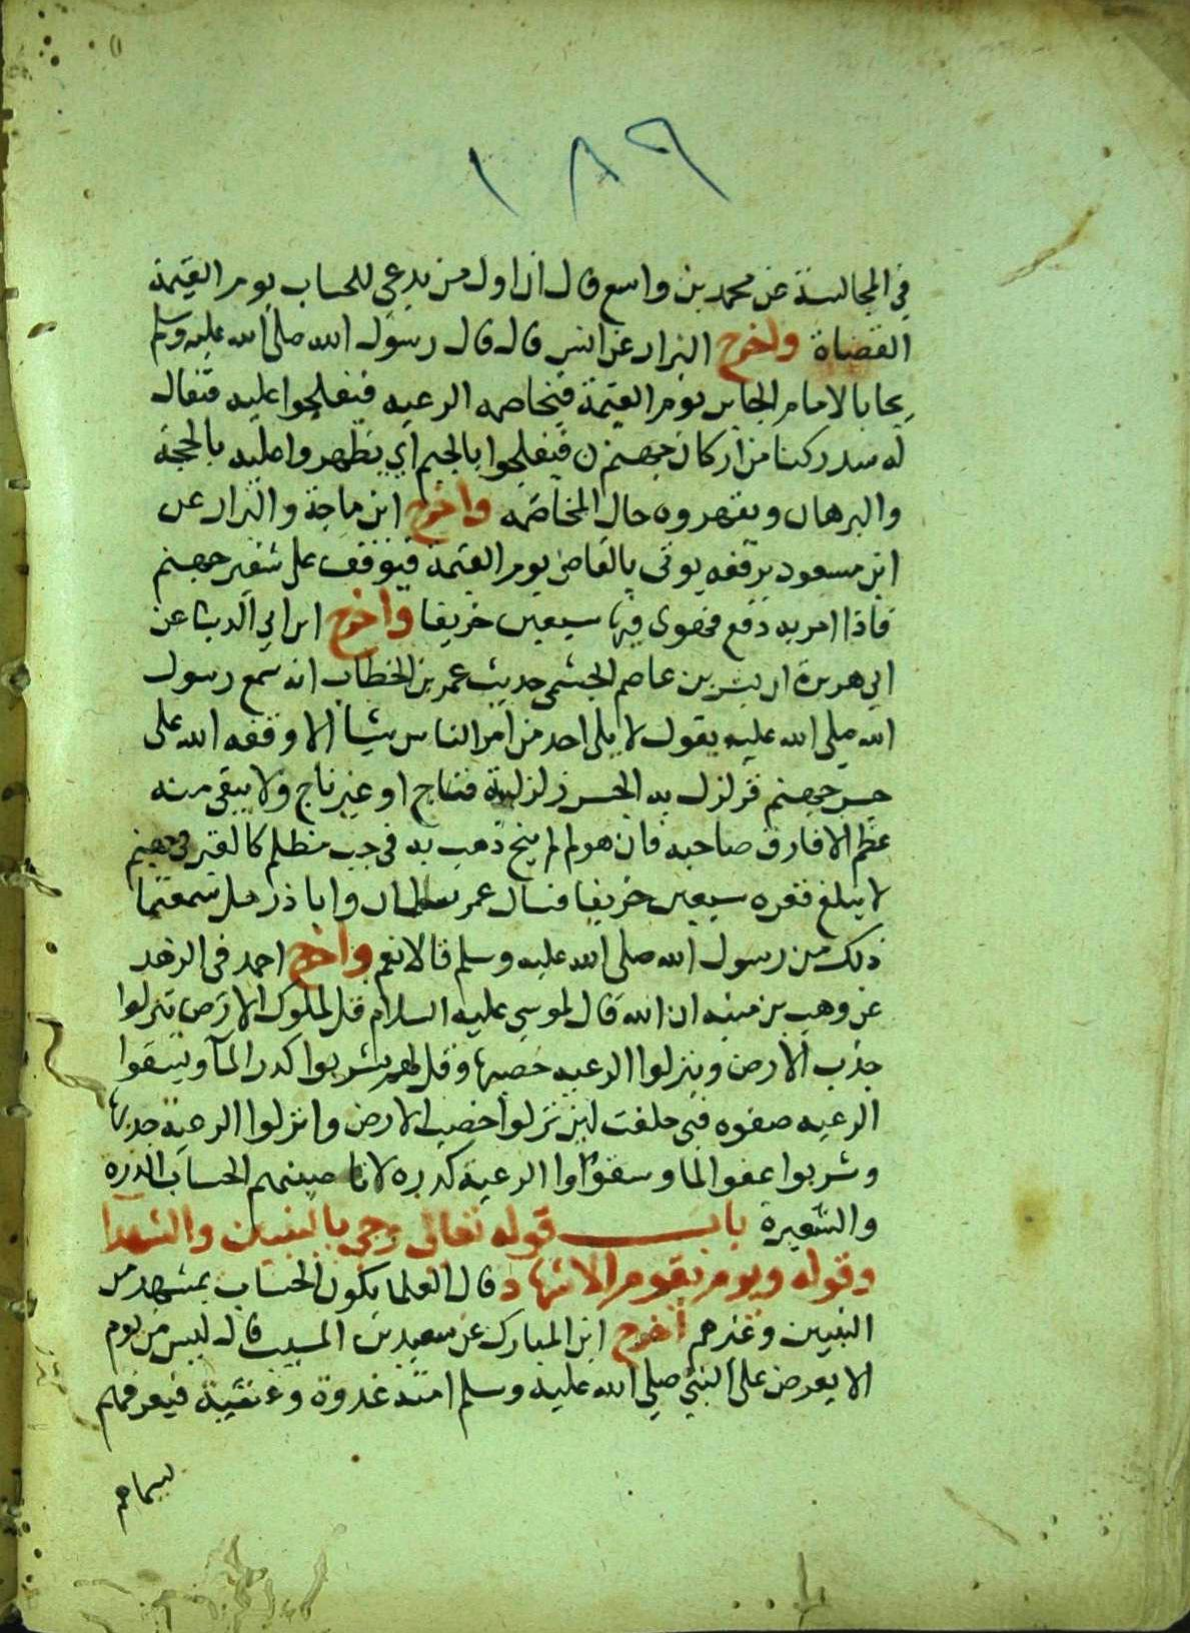 ١٨٩
في المجالسة عن محمد بن واسع قال ان اول من يدعى للحساب يوم القيمة
القضاة واخرج البزار عن انس قال قال رسول الله صلى الله عليه وسلم
يجا بالامام الجاير يوم القيمة فيخاصمه الرعيه فيفلجوا عليه فيقال
له سد ركنا من اركان جهنم فيفلجوا بالجيم اي يظهروا عليه بالحجة
والبرهان ويقهروه حال المخاصمه واخرج ابن ماجة والبزار عن
ابن مسعود يرفعه يوتى بالقاضي يوم القيمة فيوقف على شفير جهنم
فاذا امر به دفع فهوى فيها سبعين خريفا واخرج ابن ابي الدنيا عن
ابي هريرة ان بشر بن عاصم الجشمي حديث عمر بن الخطاب انه سمع رسول
الله صلى الله عليه يقول لا يلي احد من امر الناس شيا الا وقفه الله على
جسر جهنم فزلزل به الجسر زلزلة فناج او غير ناج ولا يبقى منه
عظم الا فارق صاحبه فان هو لم ينج ذهب به في جب مظلم كالقبر في جهنم
لا يبلغ قعره سبعين خريفا فسال عمر سلمان وابا ذر هل سمعتما
ذلك من رسول الله صلى الله عليه وسلم قالا نعم واخرج احمد في الزهد
عن وهب بن منبه ان الله قال لموسى عليه السلام قل لملوك الارض ينزلوا
جذب الارض وينزلوا الرعيه خصبها وقل لهم يشربوا كدر الما ويسقوا
الرعيه صفوه فبي حلفت لين نزلوا خصب الارض وانزلوا الرعية جدبها
وشربوا عفو الما وسقوا الرعية كدره لاناصبنهم الحساب الذره
والشعيرة باب قوله تعالى وجي بالنبيين والشهدا
وقوله ويوم يقوم الاشهاد قال العلما يكون الحساب بمشهد من
النبيين وغيرهم اخرج ابن المبارك عن سعيد بن المسيب قال ليس من يوم
الا يعرض على النبي صلى الله عليه وسلم امته غدوة وعشية فيعرفهم
بسيماهم